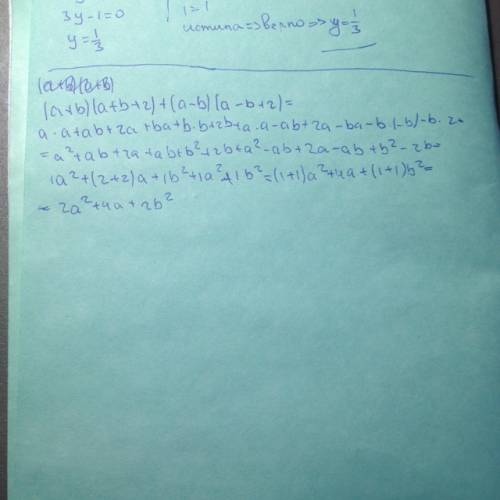 3y-1=0
y=1/3
1=1
истина=>верно=>y=1/3
(a+b)(a+b+2)+(a-b)(a-b+2)=
a·a+ab+2a+ba+b·b+2b+a·a-ab+2a-ba-b(-b)-b·2=
=a²+ab+2a+ab+b²+2b+a²-ab+2a-ab+b²-2b=
1a²+(2+2)a+1b²+1a²+1b²=(1+1)a²+4a+(1+1)b²=
=2a²+4a+2b²